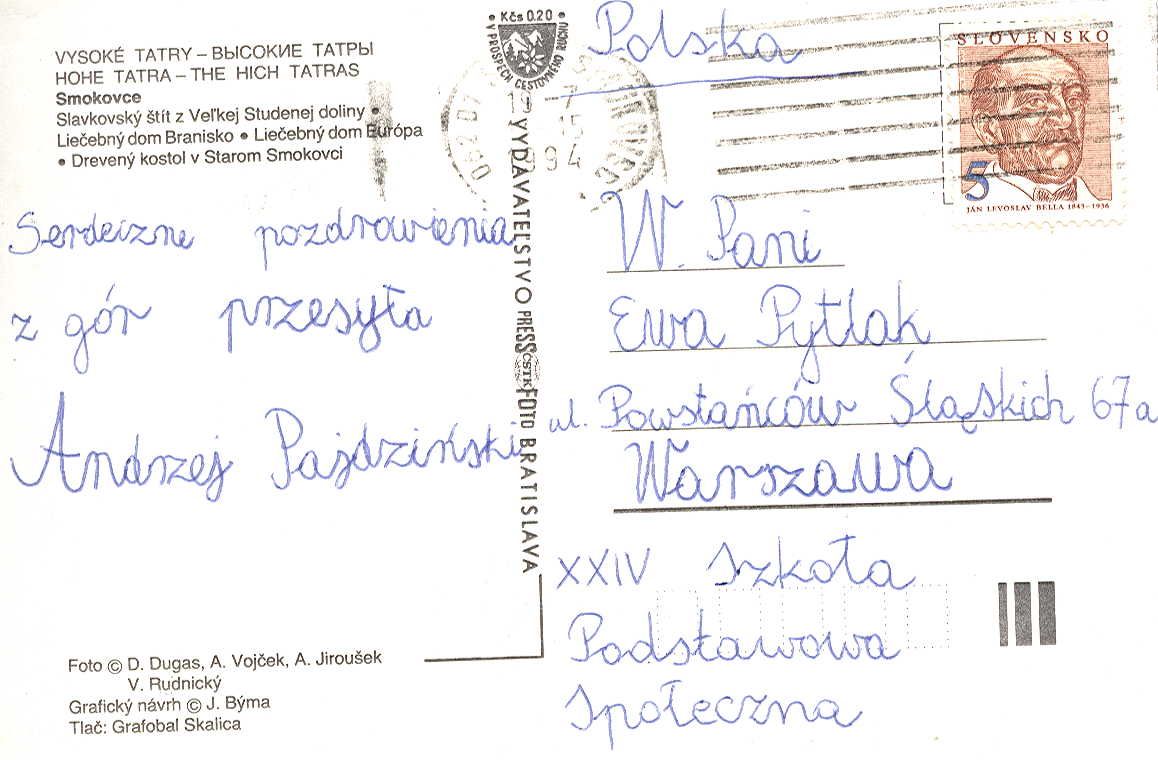 VYSOKÉ TATRY – ВЫСОКИЕ ТАТРЫ
HOHE TATRA – THE HICH TATRAS
Smokovce
Slavkovský štít z Veľkej Studenej doliny •
Liečebný dom Branisko • Liečebný dom Európa
• Drevený kostol v Starom Smokovci
Serdeczne pozdrowienia
z gór przesyła
Andrzej Pajdziński
Foto © D. Dugas, A. Vojček, A. Jiroušek
V. Rudnický
Grafický návrh © J. Býma
Tlač: Grafobal Skalica
• Kčs 0.20 •
V PROSPECH CESTOVNÉHO RUCHU
VYDAVATEĽSTVO PRESSFOTO BRATISLAVA
ČSTK
Polska
SLOVENSKO
5
JÁN LEVOSLAV BELLA 1843-1936
W. Pani
Ewa Pytlak
ul. Powstańców Śląskich 67a
Warszawa
XXIV Szkoła
Podstawowa
Społeczna